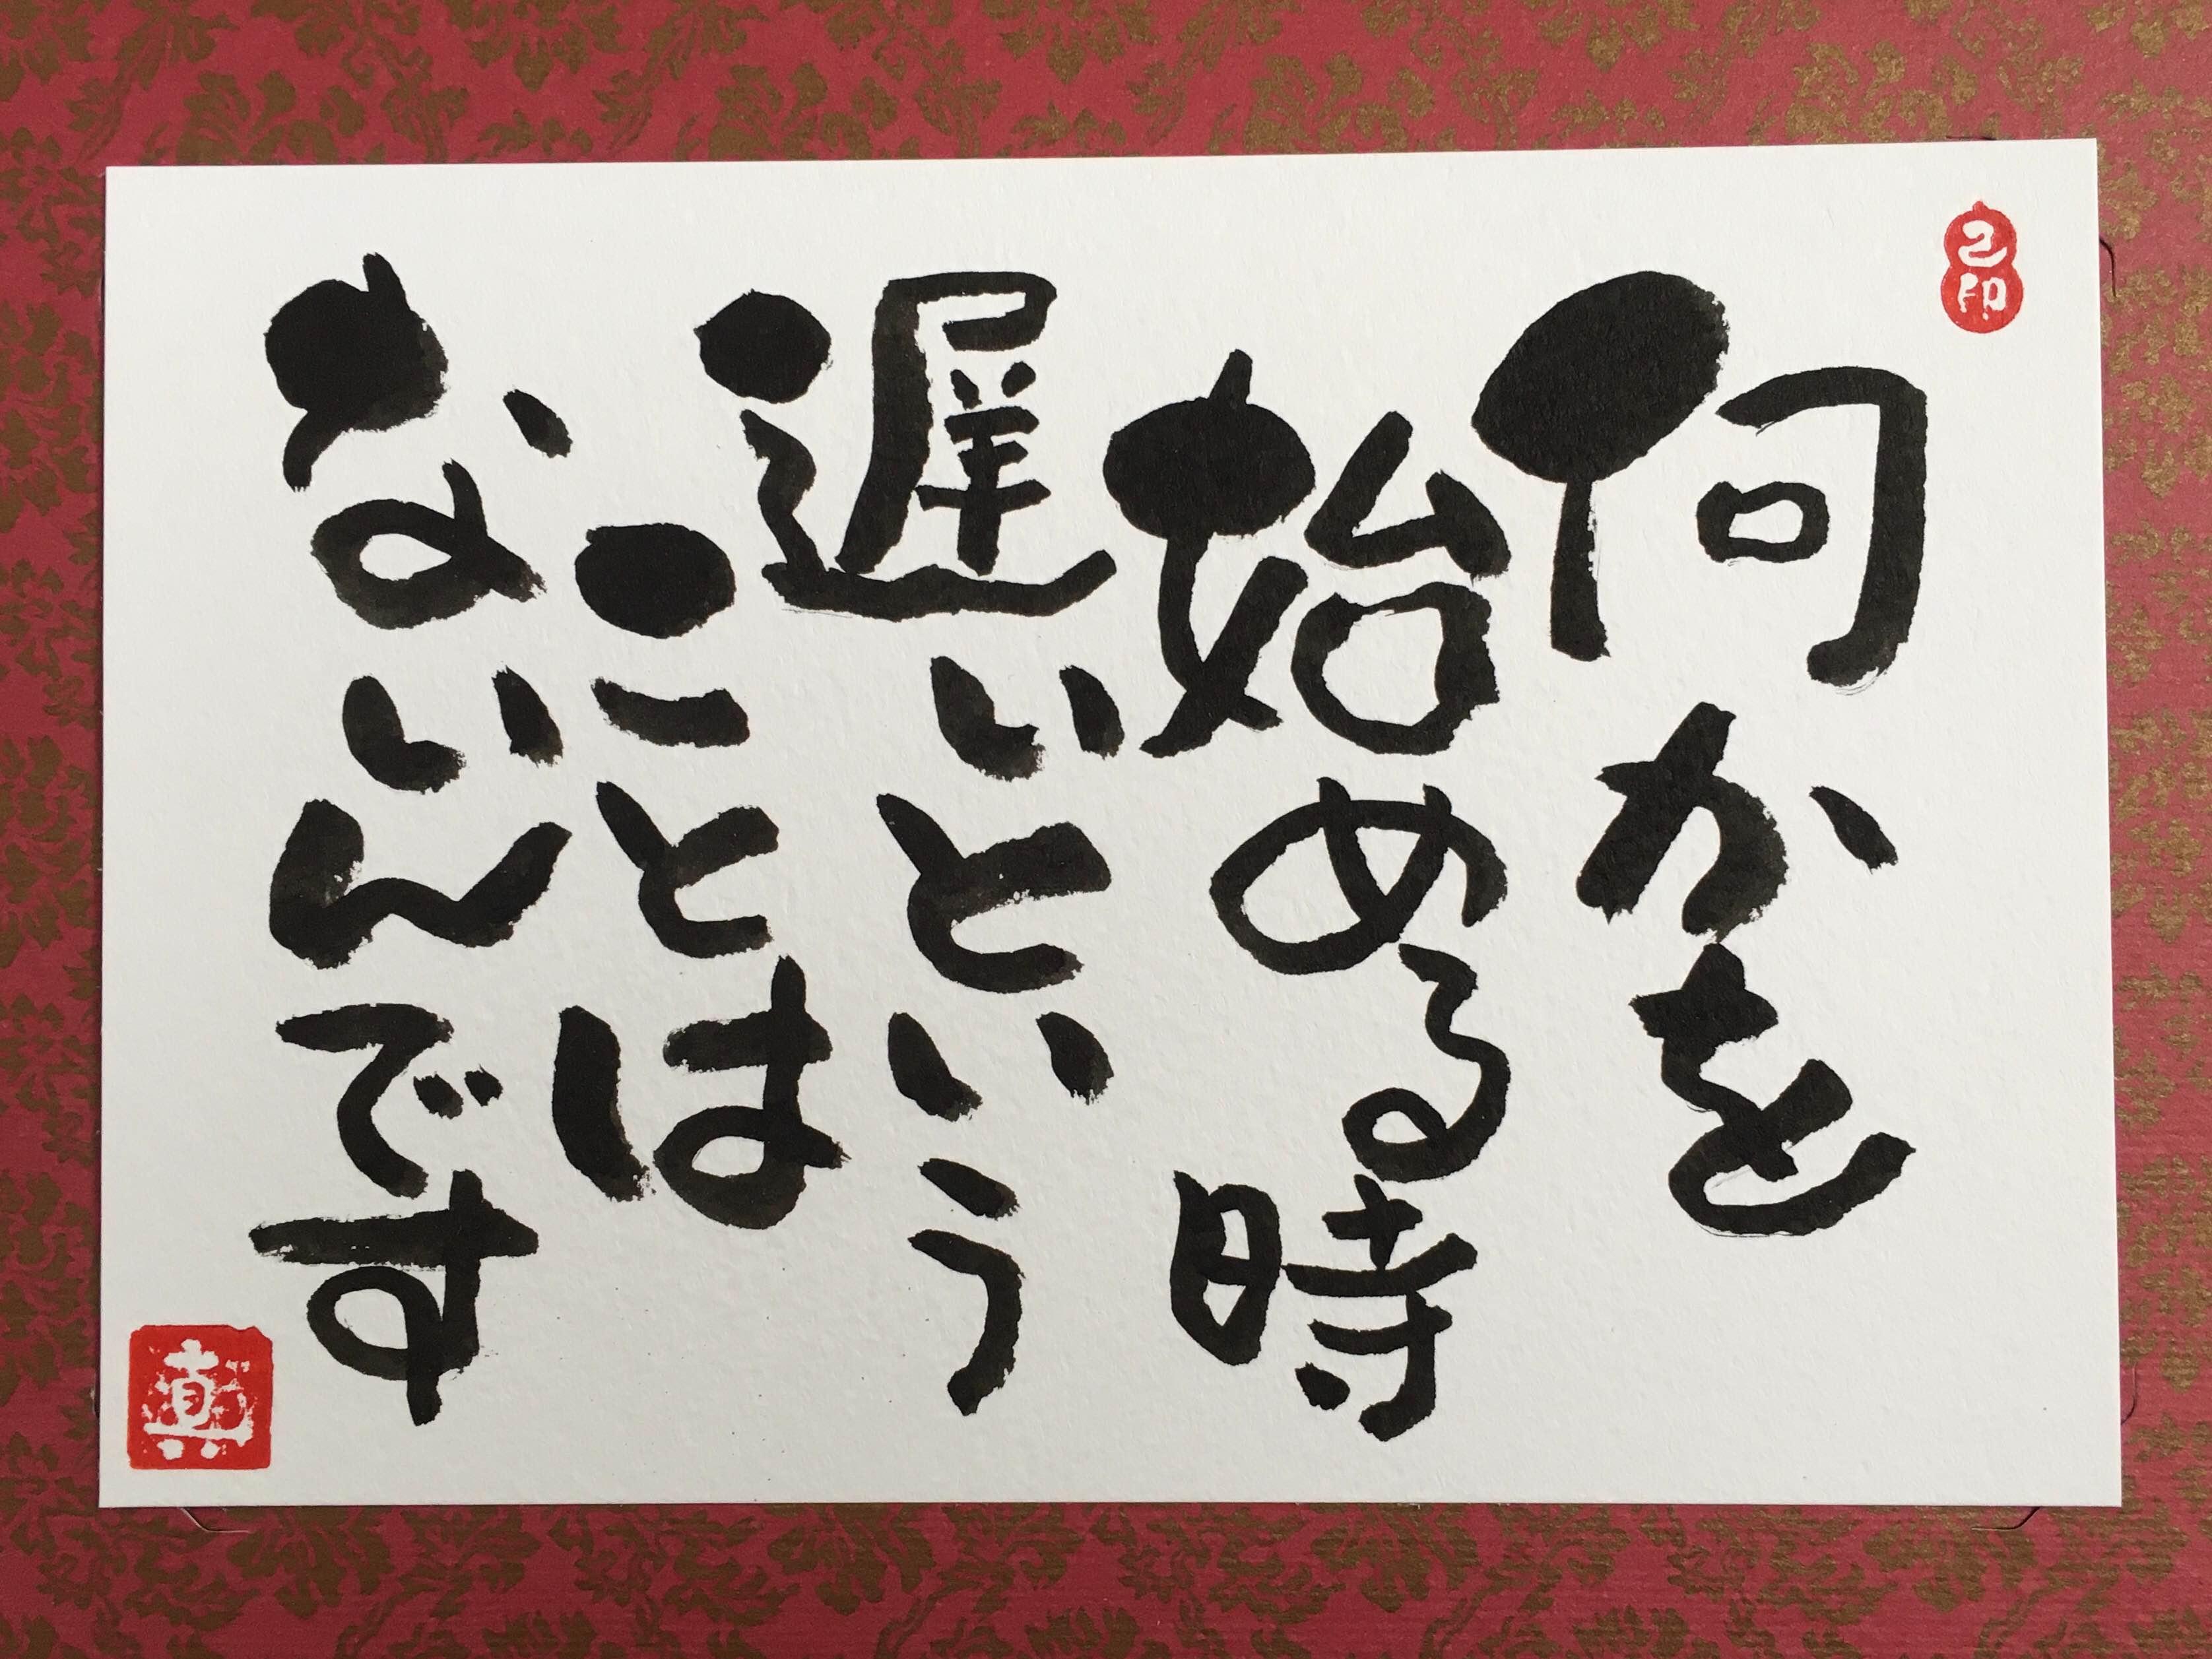 何かを
始める時
遅いという
ことは
ないんです
真